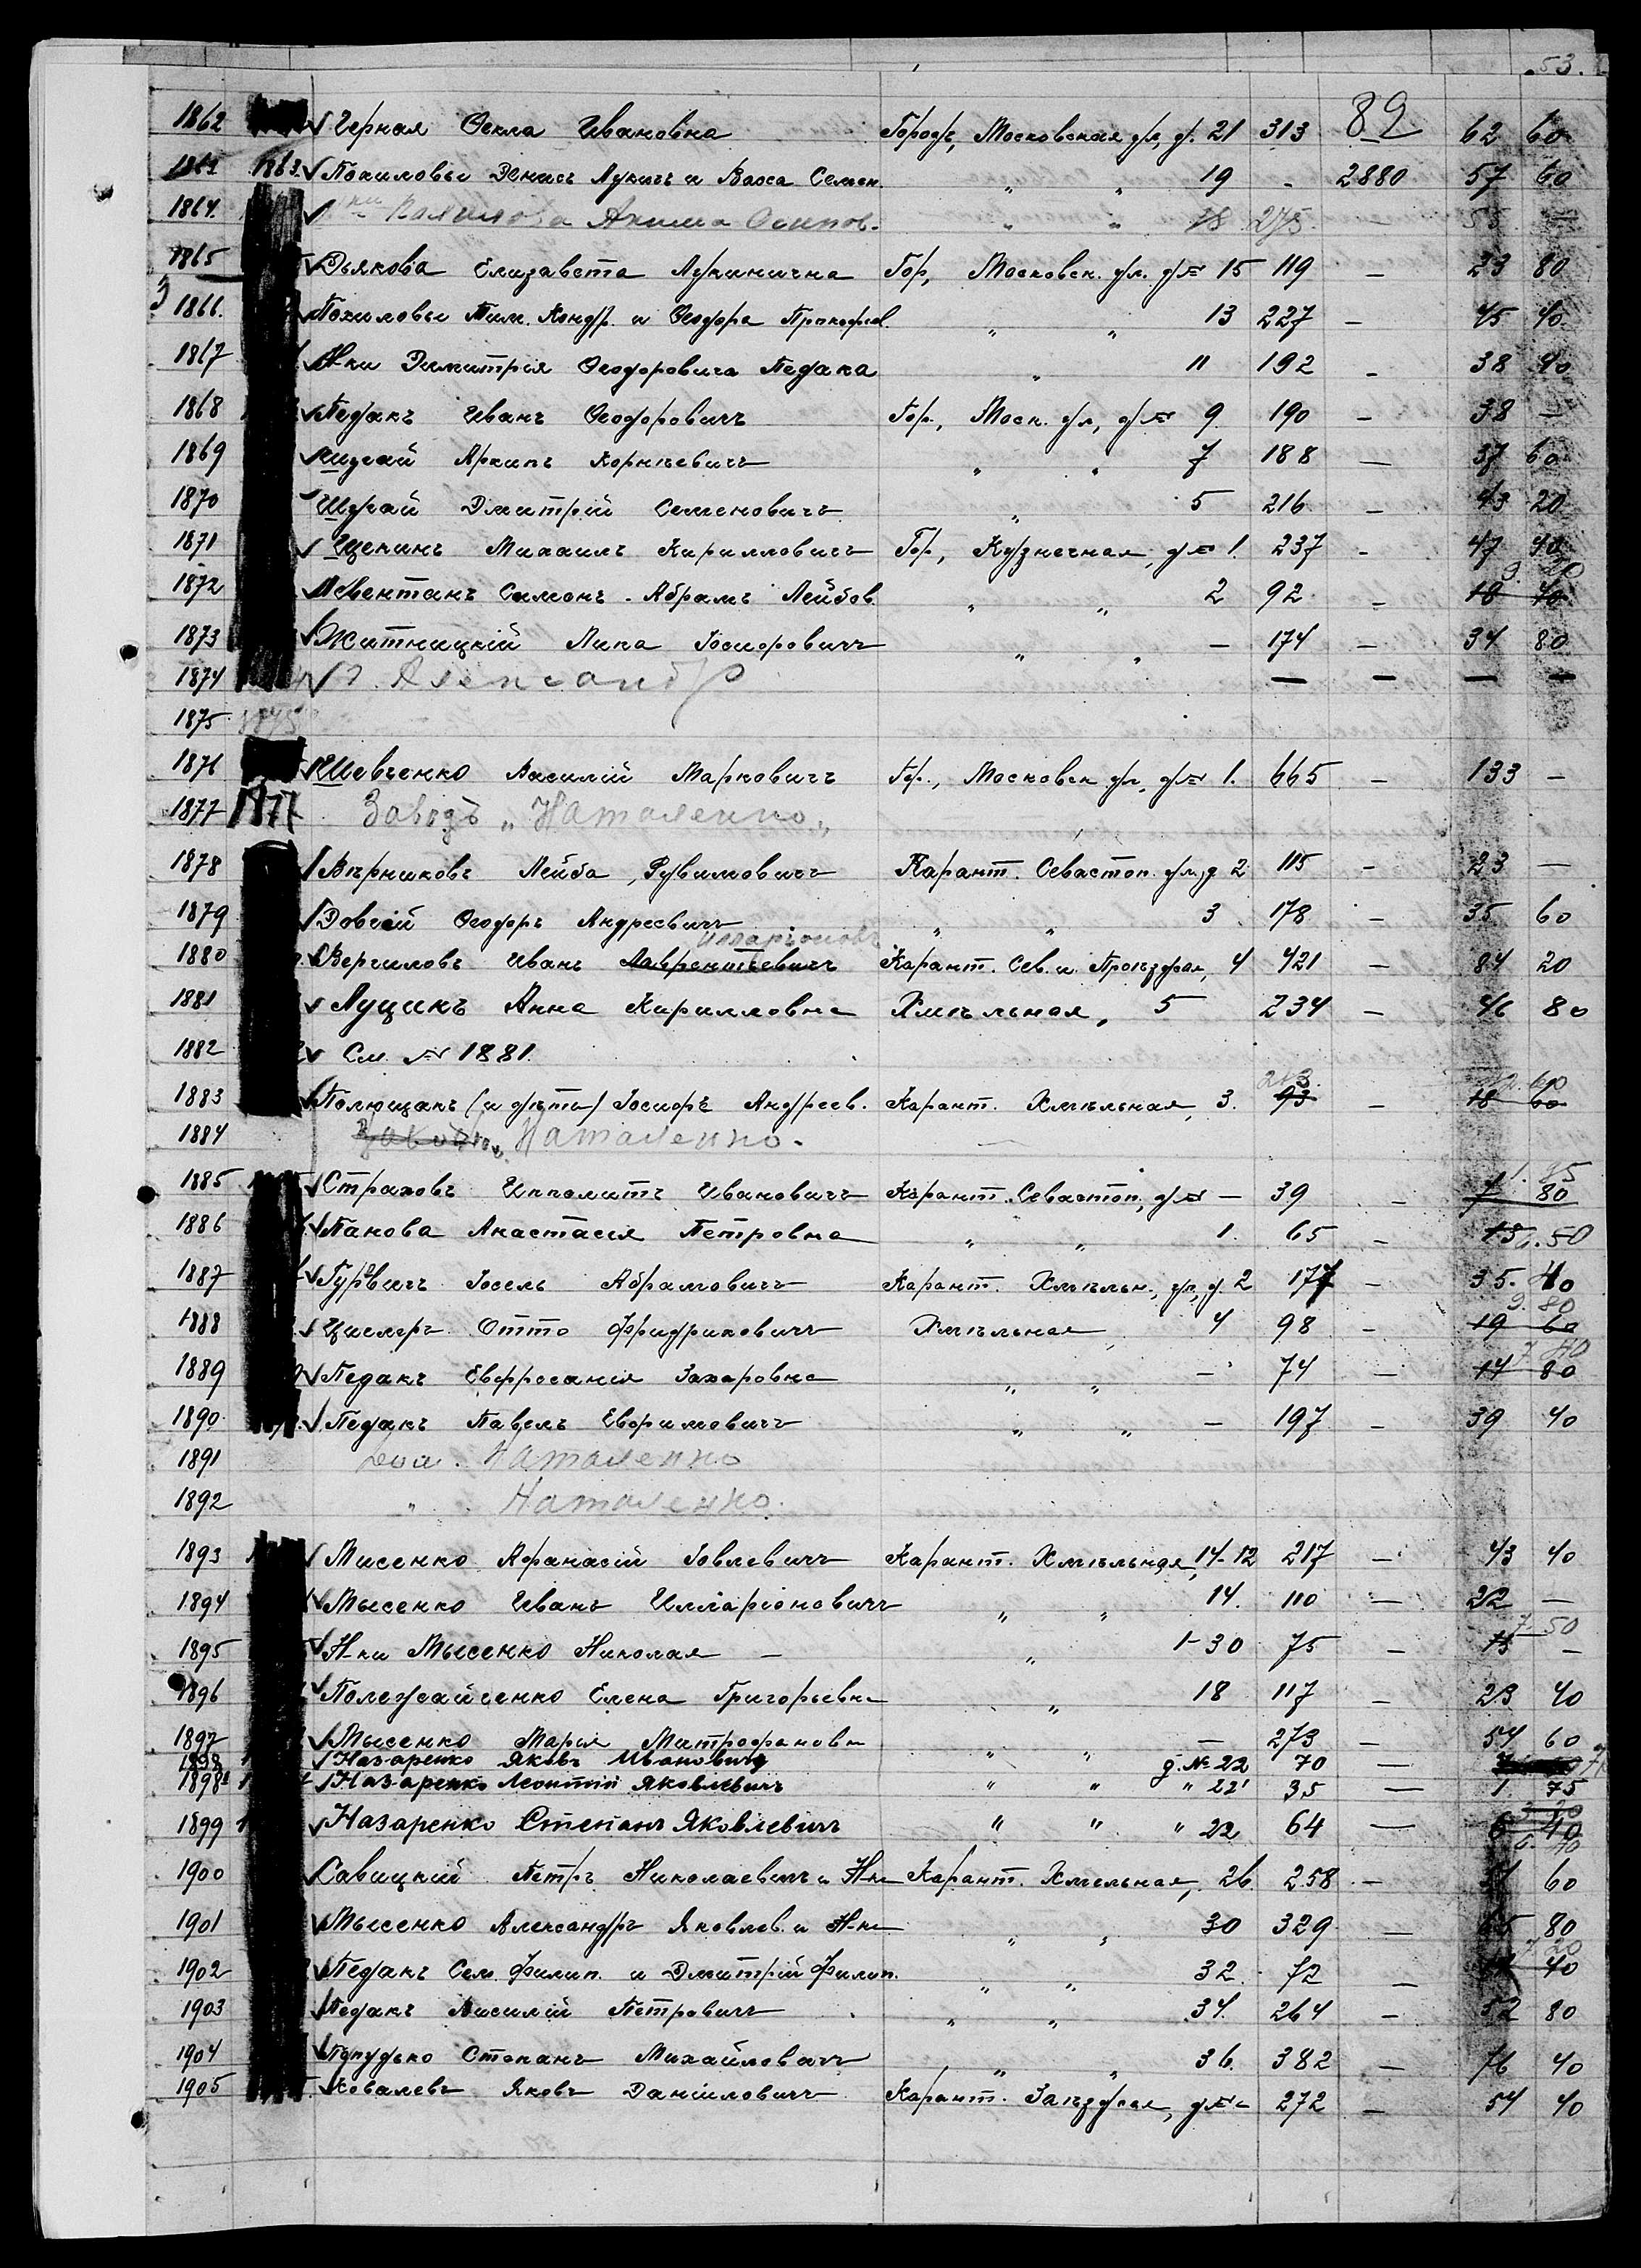 53.
89
1862 Черная Фекла Ивановна Городъ, Московская ул, д. 21 313 62 60
1863 1863. Похиловы Денисъ Лукичъ и Васса Семен. " " 19 - 2880 57 60
1864. Акима Осипов. " " 18 275. — 55 —
1865 Дьякова Елизавета Лукинична Гор, Московск. ул. д№ 15 119 — 23 80
1866. Похиловы Пим. Кондр. и Феодора Прокофьев. " " 13 227 — 45 40
1867 Н-ки Димитрія Феодоровича Педака " 11 192 - 38 40
1868 Педакъ Иванъ Феодоровичъ Гор., Моск. ул, д№ 9 190 - 38 —
1869 Архипъ Корнѣевичъ " " 7 188 — 37 60
1870 Шудай Дмитрій Семеновичъ " 5 216 - 43 20
1871 Щекинъ Михаилъ Кирилловичъ Гор, Кузнечная, д№ 1. 237 - 47 40
9. 20
1872 Левентанъ Симонъ-Абрамъ Лейбов. " " 2 92 - 18 40
1873 Житницкій Липа Іосифовичъ " " — 174 — 34 80
1874 Александр — — — —
1875 1875
1876 Шевченко Василій Марковичъ Гор., Московск ул, д№ 1. 665 - 133 —
1877 1877 Заводъ „Наталенко„
1878 Вѣрниковъ Лейба Рувимовичъ Карант. Севастоп. ул, д 2 115 - 23 —
1879 Довгій Феодоръ Андреевичъ " " 3 178 - 35 60
Илларіонов
1880 Вергиловъ Иванъ Лаврентьевичъ Карант. Сев. и Проѣздная, 4 421 — 84 20
1881 Луцикъ Анна Кирилловна Хмѣльная, 5 234 - 46 80
1882 См. № 1881.
213.
1883 Полющакъ (и дѣти) Іосифъ Андреев. Карант. Хмѣльная, 3. 93 - 18 60
1884 Наталенко.
1885 Страховъ Ипполитъ Ивановичъ Карант. Севастоп., д№ — 39 - 7 80
1886 Панова Анастасія Петровна " " 1. 65 - 13 6.50
1887 Гурвичъ Іосель Абрамовичъ Карант. Хмѣльн., ул, д. 2 177 - 35. 40
9. 80
1888 Цислеръ Отто Фридриховичъ Хмѣльная, 4 98 - 19 60
7 40
1889 Педакъ Евфросинія Захаровна " " - 74 — 14 80
1890. Педакъ Павелъ Ефимовичъ " " — 197 - 39 40
1891 Наталенко
1892 " Наталенко.
1893 Мисенко Афанасій Іовлевичъ Карант. Хмѣльная, 14-12 217 — 43 40
1894 Мысенко Иванъ Илларіоновичъ " " 14. 110 — 22 —
7-50
1895 Н-ки Мысенко Николая — " 1-30 75 - 15 -
1896 Полежайченко Елена Григорьевна " 18 117 - 23 40
1897 Мысенко Марія Митрофановн — 273 — 54 60
1898 Назаренко Яковъ Ивановичъ " " д. № 22 70 — 7
1898¹ Назаренко Леонтій Яковлевичъ " " " 22¹ 35 — 1 75
1899 Назаренко Степанъ Яковлевичъ " " " 22 64 — 6 40
1900 Савицкій Петръ Николаевичъ и Н-ки Карант. Хмельная, 26. 258 - 51 60
1901 Мысенко Александръ Яковлев. и Н-ки " " 30 329 — 65 80
7 20
1902 Педакъ Сем. Филип. и Дмитрій Филип. " " 32 72 — 14 40
1903 Педакъ Василій Петровичъ " " 34. 264 - 52 80
1904 Степанъ Михайловичъ " " 36. 382 — 76 40
1905 Ковалевъ Яковъ Даніиловичъ Карант. Заѣздная, д№ — 272 — 54 40